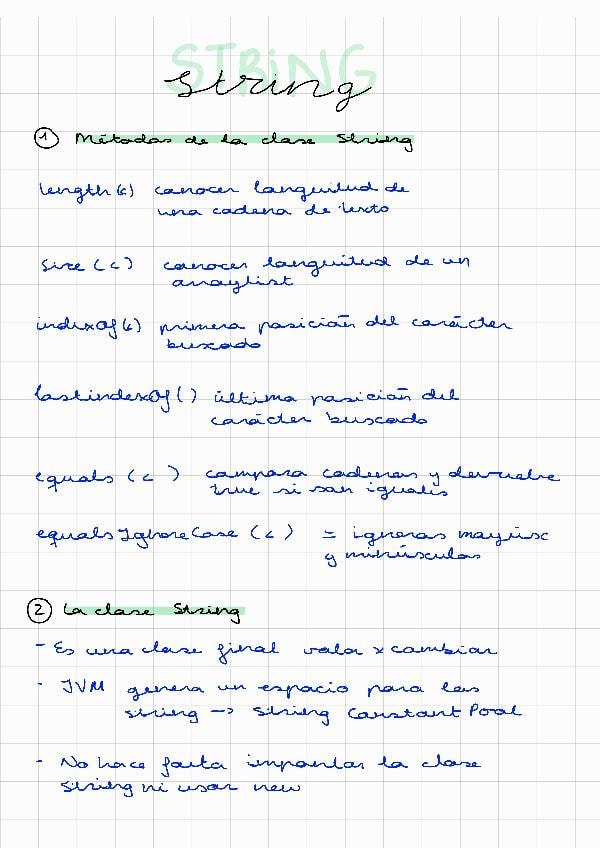 STRING
String
1 Métodos de la clase String
length() conocer longuitud de
una cadena de texto
size() conocer longuitud de un
arraylist
indexOf() primera posición del carácter
buscado
lastindexOf() última posición del
carácter buscado
equals () compara cadenas y devuelve
true si son iguales
equalsIgnoreCase () = ignoras mayúsc
y minúsculas
2 La clase String
- Es una clase final valor x cambiar
- JVM genera un espacio para las
string -> String Constant Pool
- No hace falta importar la clase
String ni usar new